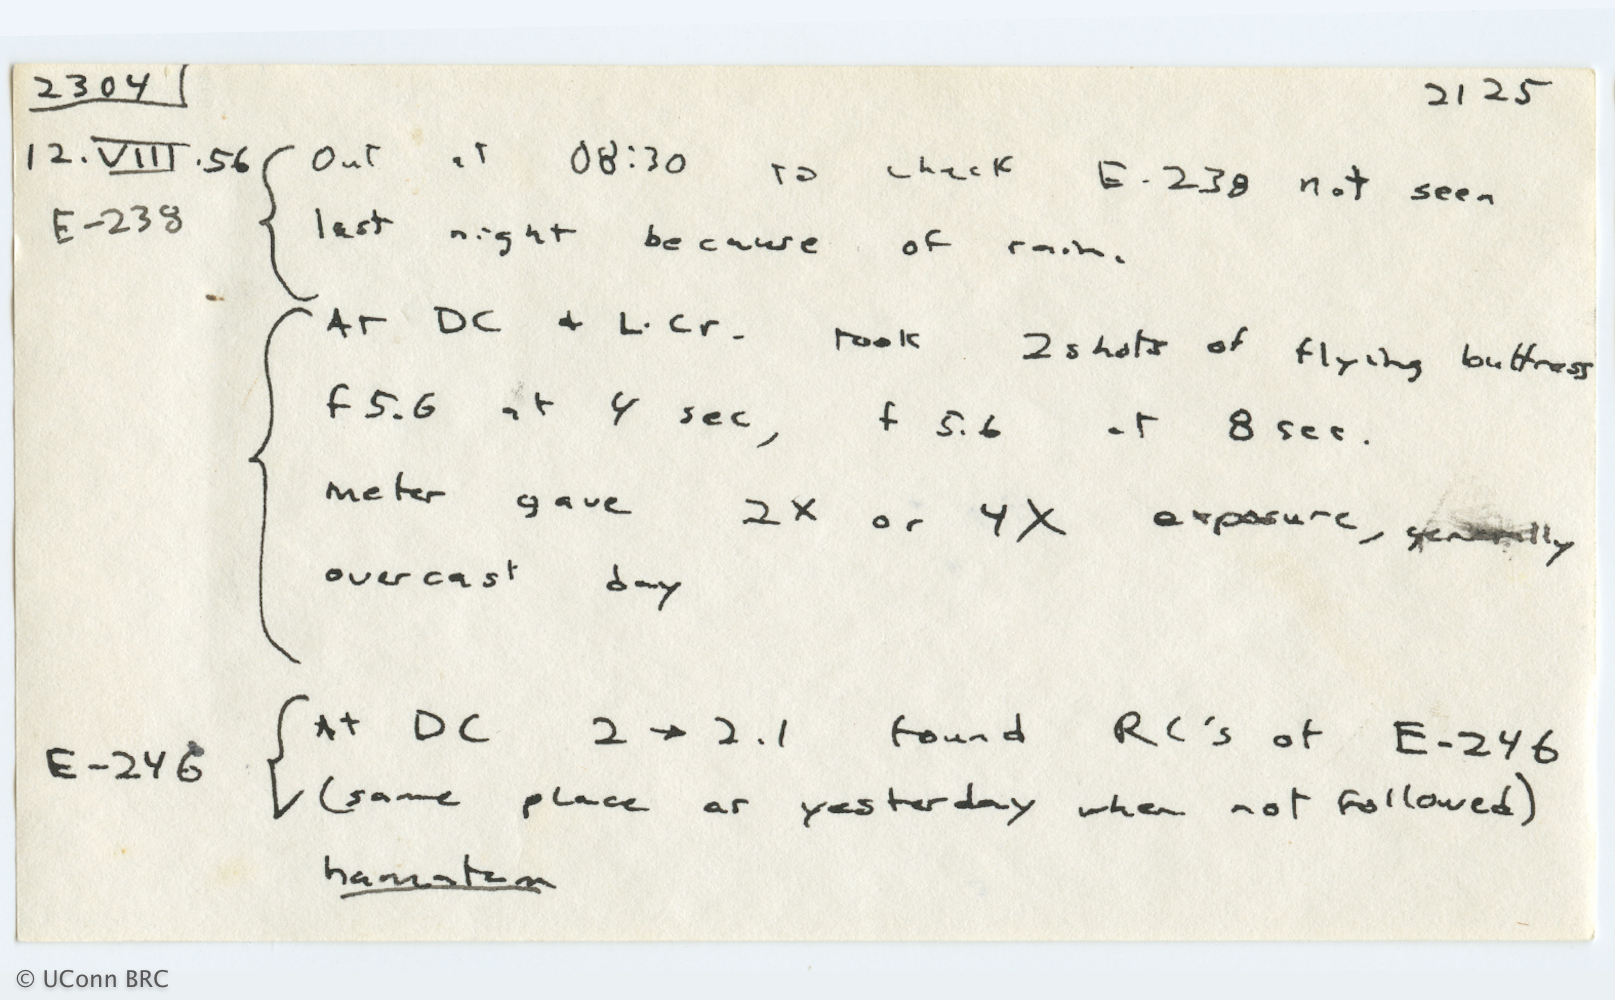 2304 2125
12.VIII.56 Out at 08:30 to check E-238 not seen
E-238 last night because of rain.
At DC + L.Cr. took 2 shots of flying buttress
f 5.6 at 4 sec, f 5.6 at 8 sec.
meter gave 2X or 4X exposure, generally
overcast day
At DC 2 → 2.1 found RC's of E-246
E-246 (same place as yesterday when not followed)
hamatum
© UConn BRC